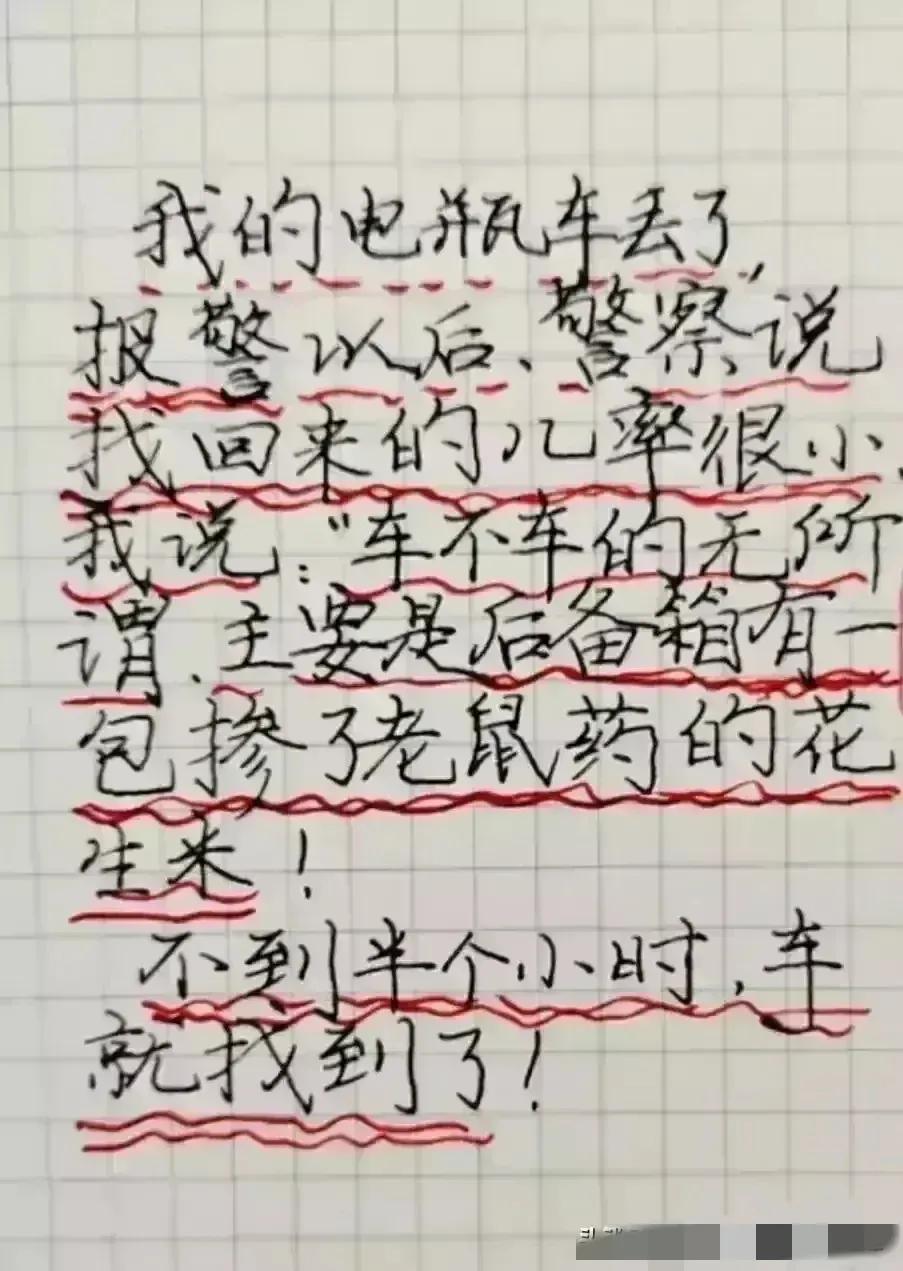 我的电瓶车丢了,
报警以后、警察说
找回来的几率很小、
我说:“车不车的无所
谓、主要是后备箱有一
包掺了老鼠药的花
生米!
不到半个小时,车
就找到了!